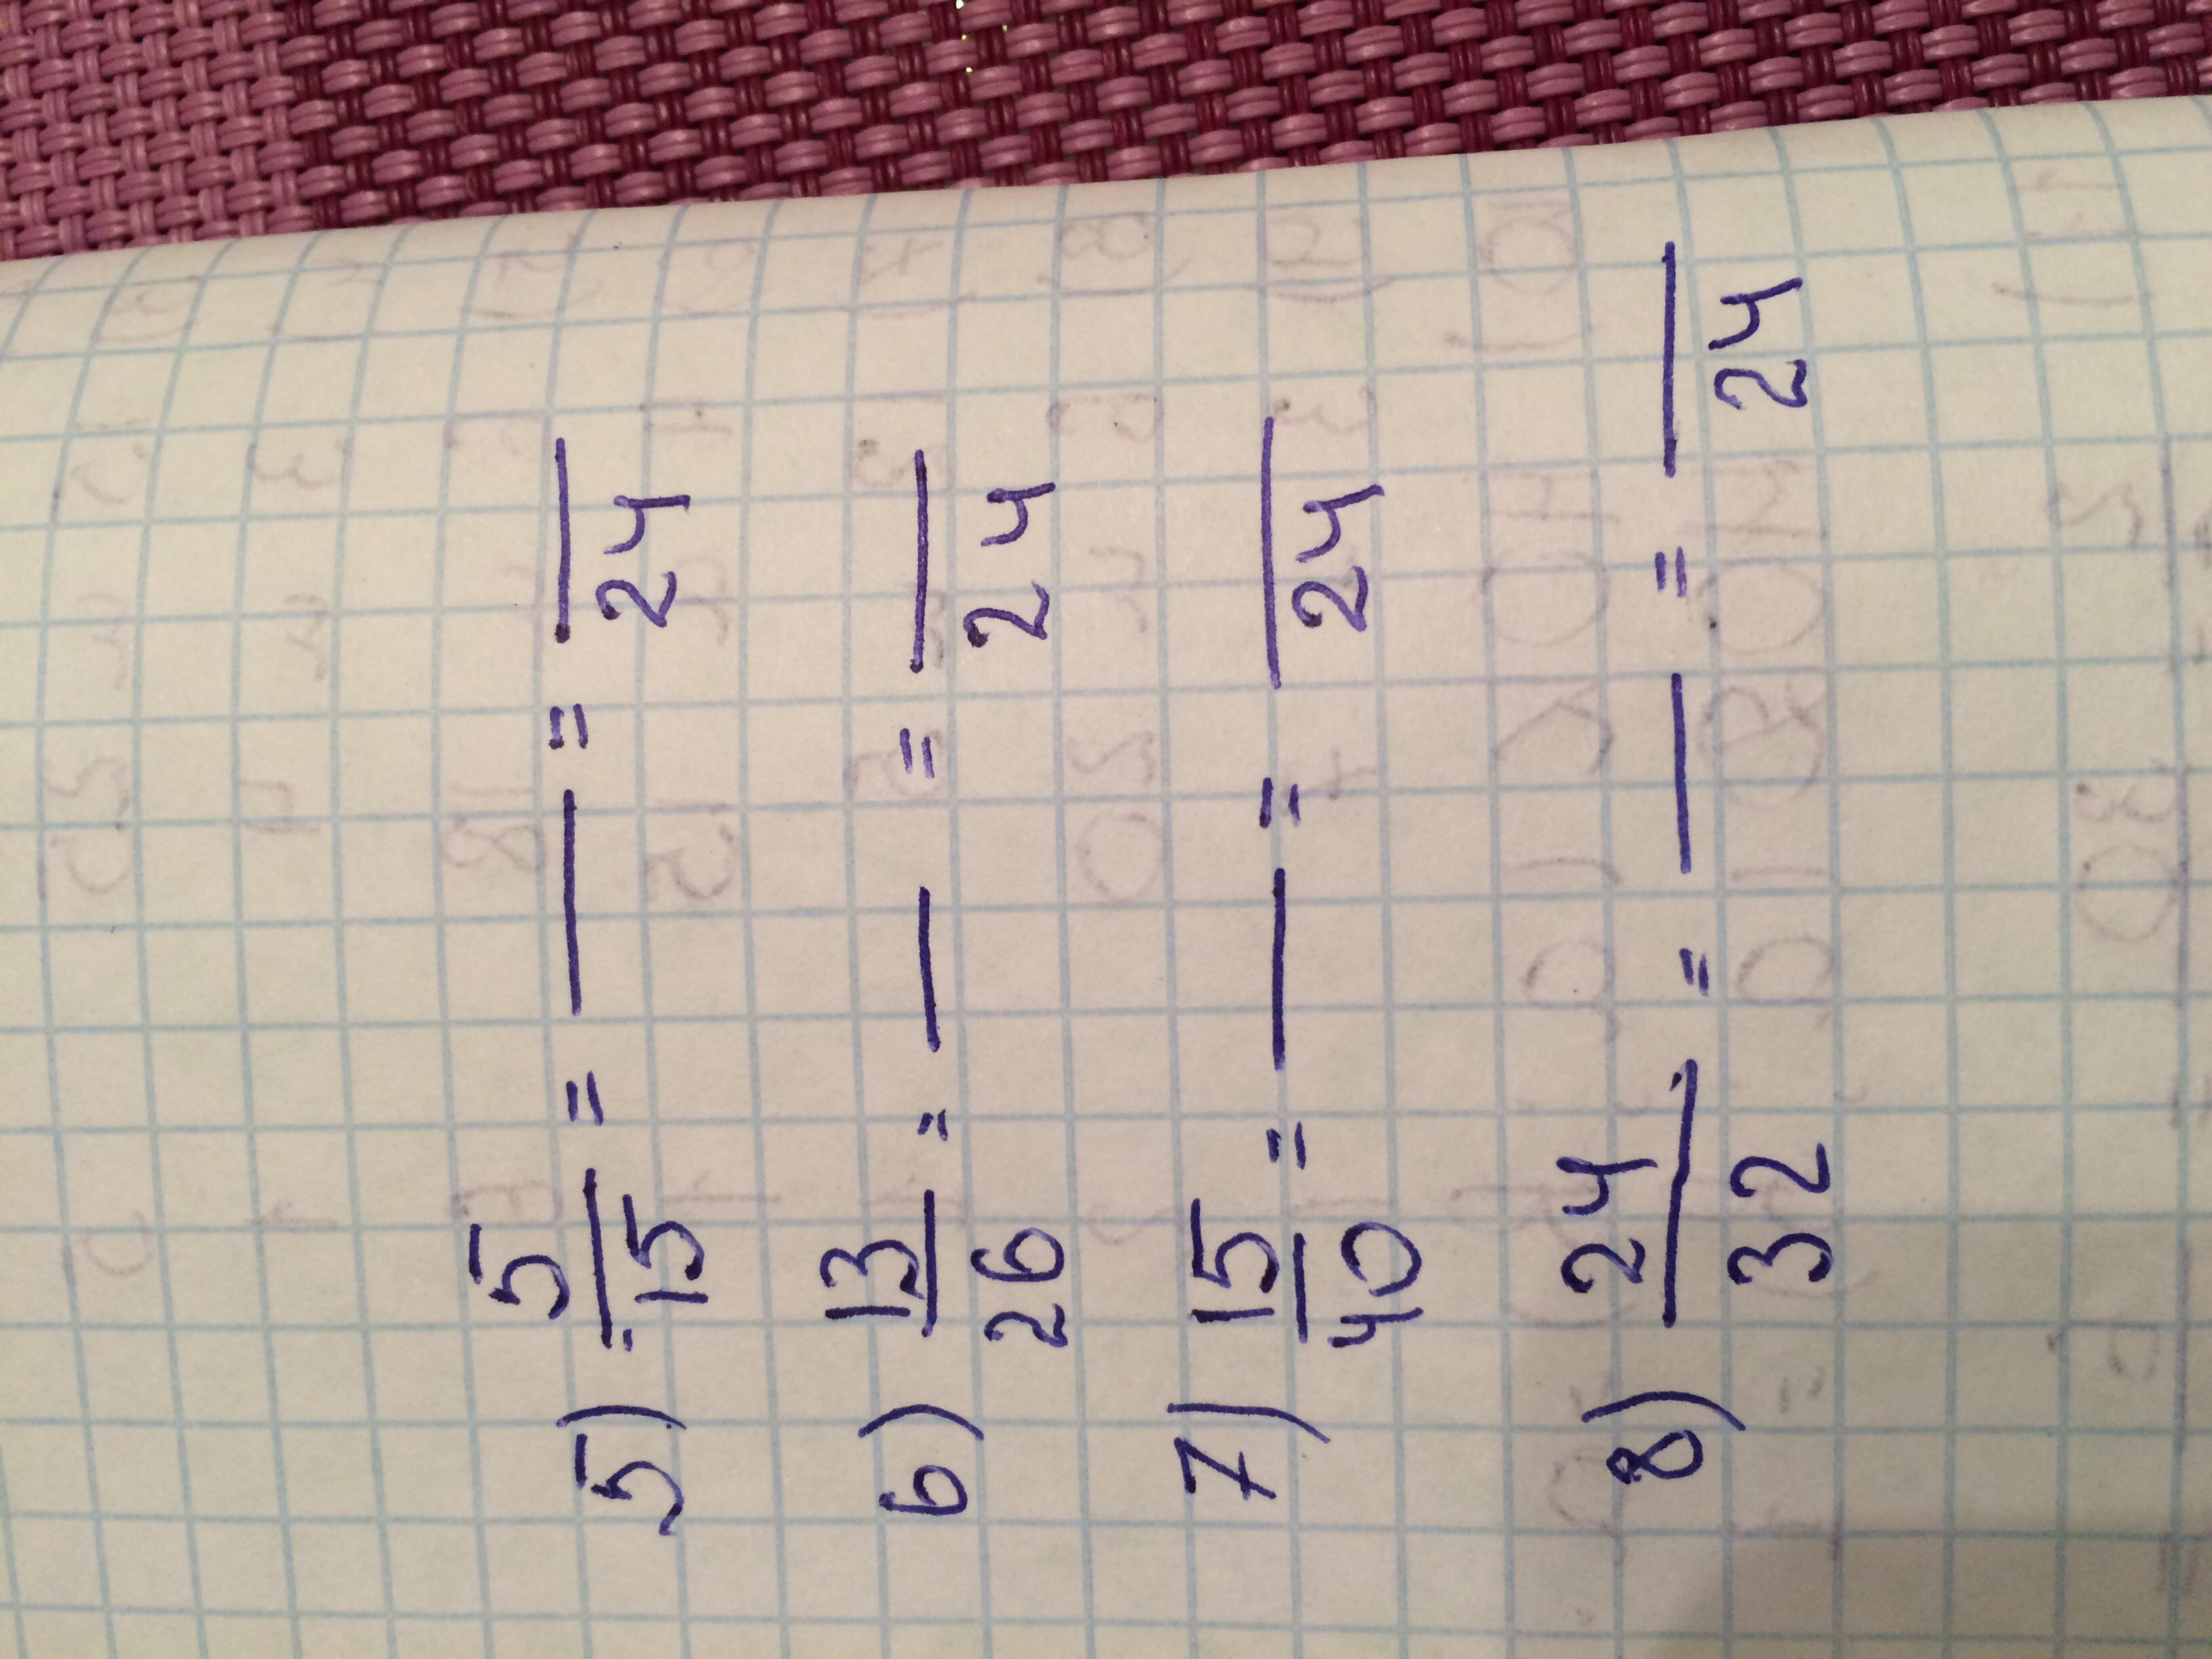 5) 5/15 = — = —/24
6) 13/26 = — = —/24
7) 15/40 = — = —/24
8) 24/32 = — = —/24